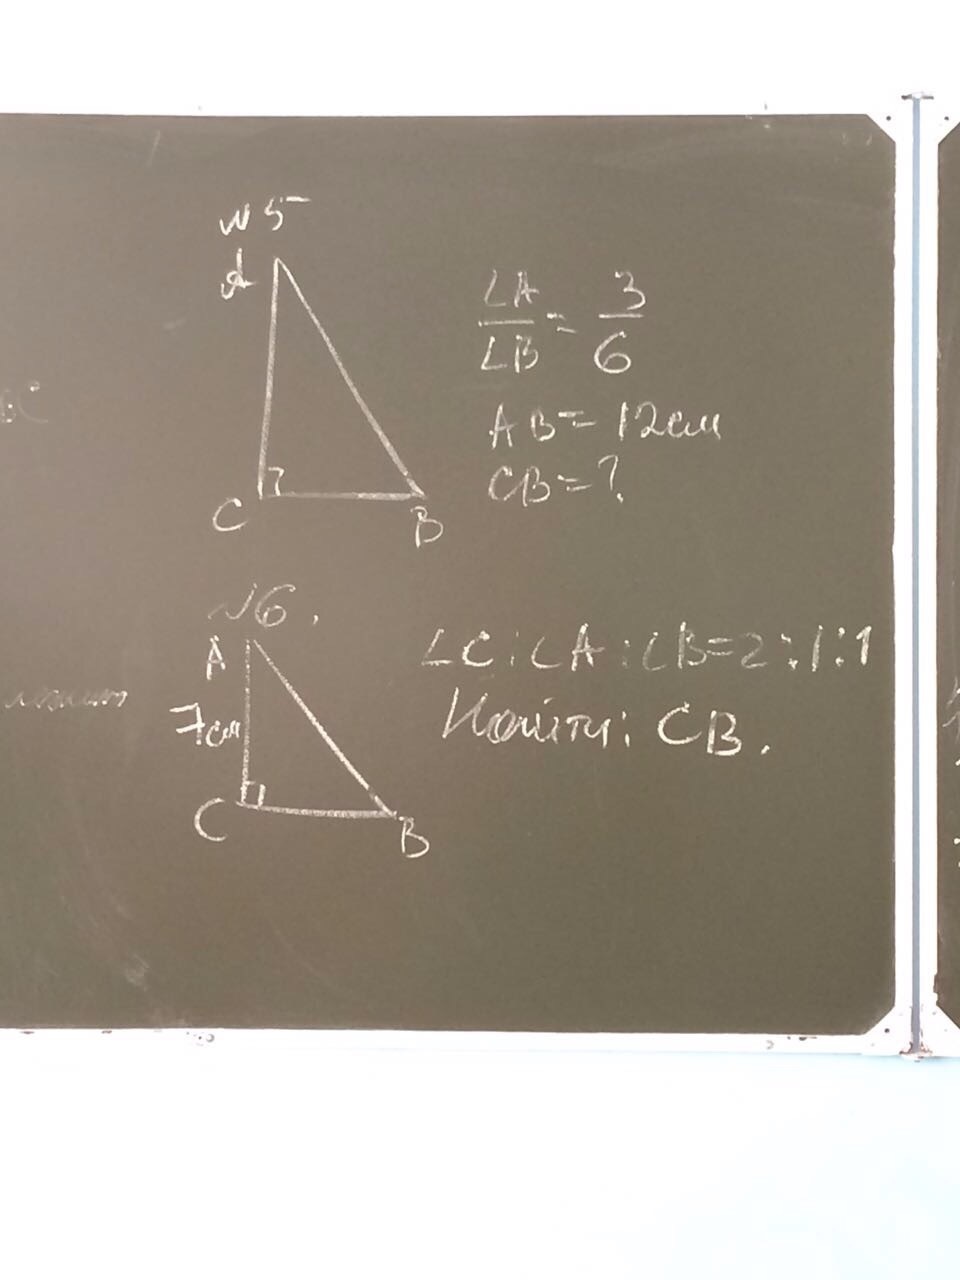 №5
A
C
B
∠A/∠B = 3/6
AB = 12см
CB = ?
№6.
A
7см
C
B
∠C : ∠A : ∠B = 2 : 1 : 1
Найти: CB.